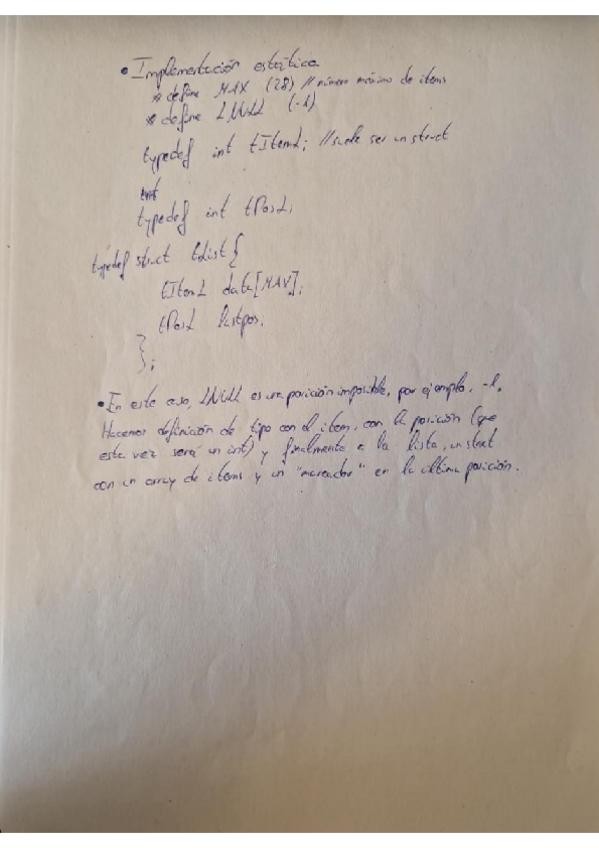 • Implementación estática
# define MAX (28) // número máximo de items
# define LNULL (-1)
typedef int tItemL; // suele ser un struct
int
typedef int tPosL;
typedef struct tList {
tItemL data[MAX];
tPosL lastpos;
};
• En este caso, LNULL es una posición imposible, por ejemplo, -1.
Hacemos definición de tipo con el item, con la posición (que
esta vez será un int) y finalmente a la lista, un struct
con un array de items y un "marcador" en la última posición.